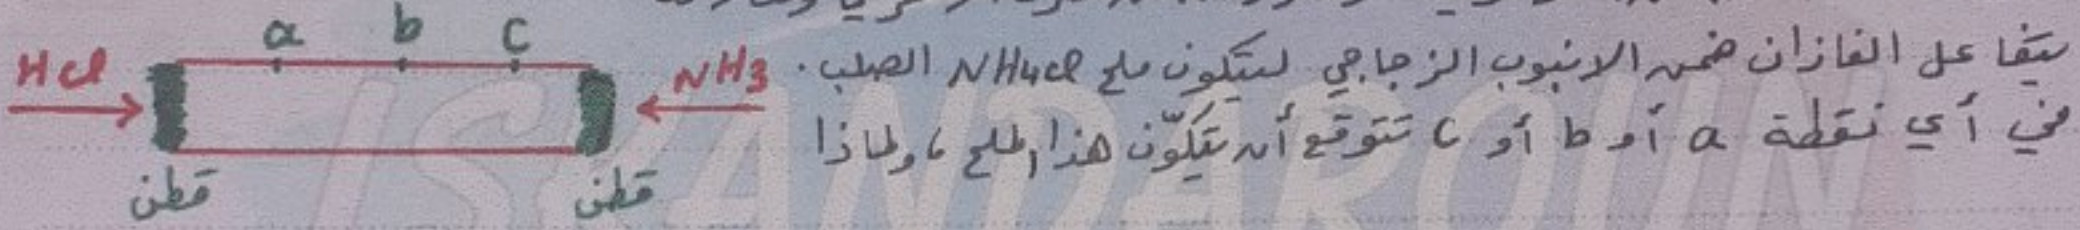 يتفاعل الغازان ضمن الانبوب الزجاجي ليتكون ملح NH4Cl الصلب.
في أي نقطة a أو b أو c تتوقع أن يتكوّن هذا الملح، ولماذا
a b c
HCl
NH3
قطن
قطن
ISKANDAROUN